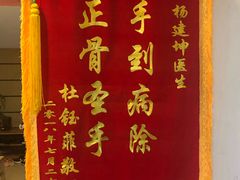 杨建坤医生
手到病除
正骨圣手
杜钰菲敬
二零一八年七月二